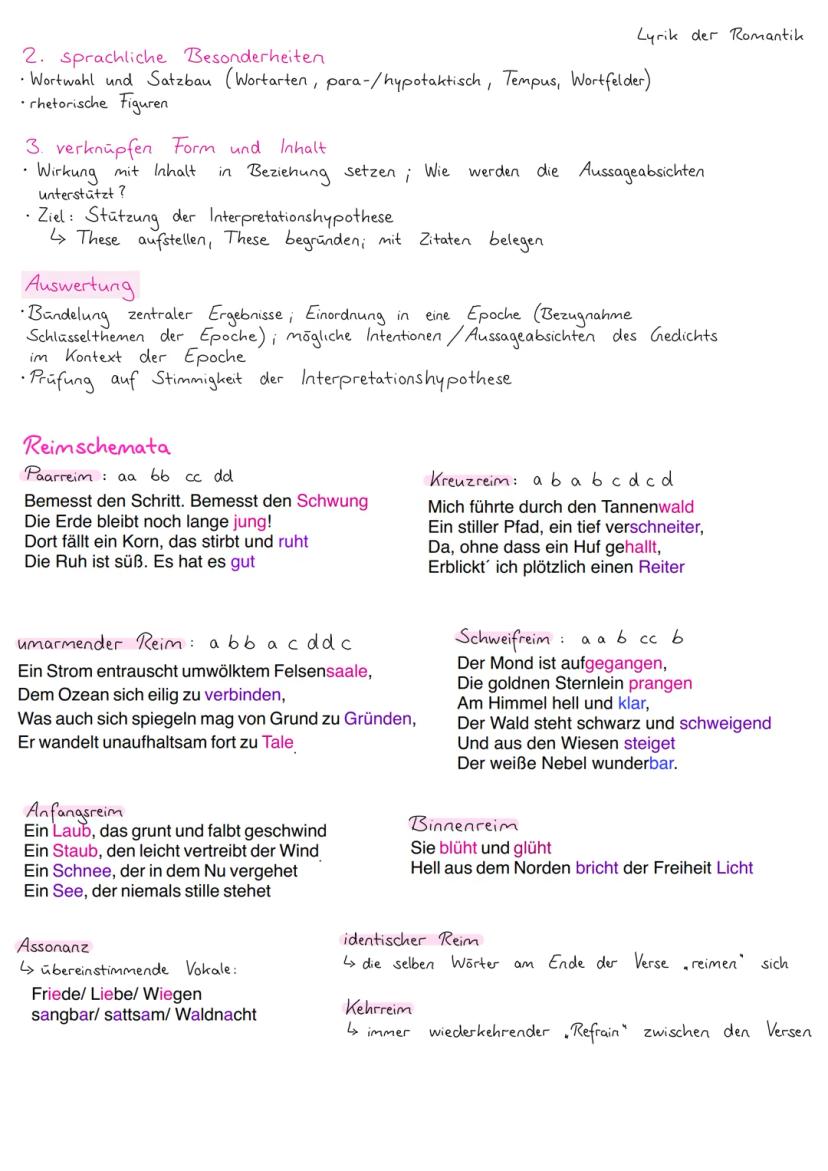 Lyrik der Romantik
2. sprachliche Besonderheiten
· Wortwahl und Satzbau (Wortarten, para-/hypotaktisch, Tempus, Wortfelder)
· rhetorische Figuren
3. verknüpfen Form und Inhalt
· Wirkung mit Inhalt in Beziehung setzen; Wie werden die Aussageabsichten
unterstützt?
· Ziel: Stützung der Interpretationshypothese
↳ These aufstellen, These begründen; mit Zitaten belegen
Auswertung
· Bündelung zentraler Ergebnisse; Einordnung in eine Epoche (Bezugnahme
Schlüsselthemen der Epoche); mögliche Intentionen/Aussageabsichten des Gedichts
im Kontext der Epoche
· Prüfung auf Stimmigkeit der Interpretationshypothese
Reimschemata
Paarreim: aa bb cc dd
Bemesst den Schritt. Bemesst den Schwung
Die Erde bleibt noch lange jung!
Dort fällt ein Korn, das stirbt und ruht
Die Ruh ist süß. Es hat es gut
Kreuzreim: a b a b c d c d
Mich führte durch den Tannenwald
Ein stiller Pfad, ein tief verschneiter,
Da, ohne dass ein Huf gehallt,
Erblickt´ ich plötzlich einen Reiter
umarmender Reim: a b b a c d d c
Ein Strom entrauscht umwölktem Felsensaale,
Dem Ozean sich eilig zu verbinden,
Was auch sich spiegeln mag von Grund zu Gründen,
Er wandelt unaufhaltsam fort zu Tale.
Schweifreim: a a b cc b
Der Mond ist aufgegangen,
Die goldnen Sternlein prangen
Am Himmel hell und klar,
Der Wald steht schwarz und schweigend
Und aus den Wiesen steiget
Der weiße Nebel wunderbar.
Anfangsreim
Ein Laub, das grunt und falbt geschwind
Ein Staub, den leicht vertreibt der Wind.
Ein Schnee, der in dem Nu vergehet
Ein See, der niemals stille stehet
Binnenreim
Sie blüht und glüht
Hell aus dem Norden bricht der Freiheit Licht
Assonanz
↳ übereinstimmende Vokale:
Friede/ Liebe/ Wiegen
sangbar/ sattsam/ Waldnacht
identischer Reim
↳ die selben Wörter am Ende der Verse „reimen" sich
Kehrreim
↳ immer wiederkehrender „Refrain" zwischen den Versen